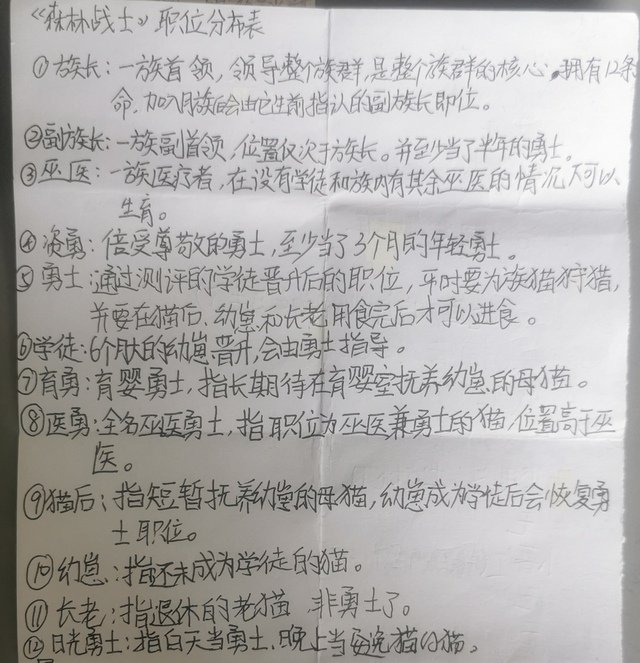 《森林战士》职位分布表
①族长：一族首领，领导整个族群，是整个族群的核心，拥有12条
命，加入月族后会由它生前指认的副族长即位。
②副族长：一族副首领，位置仅次于族长。并至少当了半年的勇士。
③巫医：一族医疗者，在没有学徒和族内有其余巫医的情况下可以
生育。
④资勇：倍受尊敬的勇士，至少当了3个月的年轻勇士。
⑤勇士：通过测评的学徒晋升后的职位，平时要为族猫狩猎，
并要在猫后、幼崽和长老用食完后才可以进食。
⑥学徒：6个月大的幼崽晋升，会由勇士指导。
⑦育勇：育婴勇士，指长期待在育婴室抚养幼崽的母猫。
⑧医勇：全名巫医勇士，指职位为巫医兼勇士的猫，位置高于巫
医。
⑨猫后：指短暂抚养幼崽的母猫，幼崽成为学徒后会恢复勇
士职位。
⑩幼崽：指还未成为学徒的猫。
⑪长老：指退休的老猫，非勇士了。
⑫日光勇士：指白天当勇士，晚上当宠猫的猫。